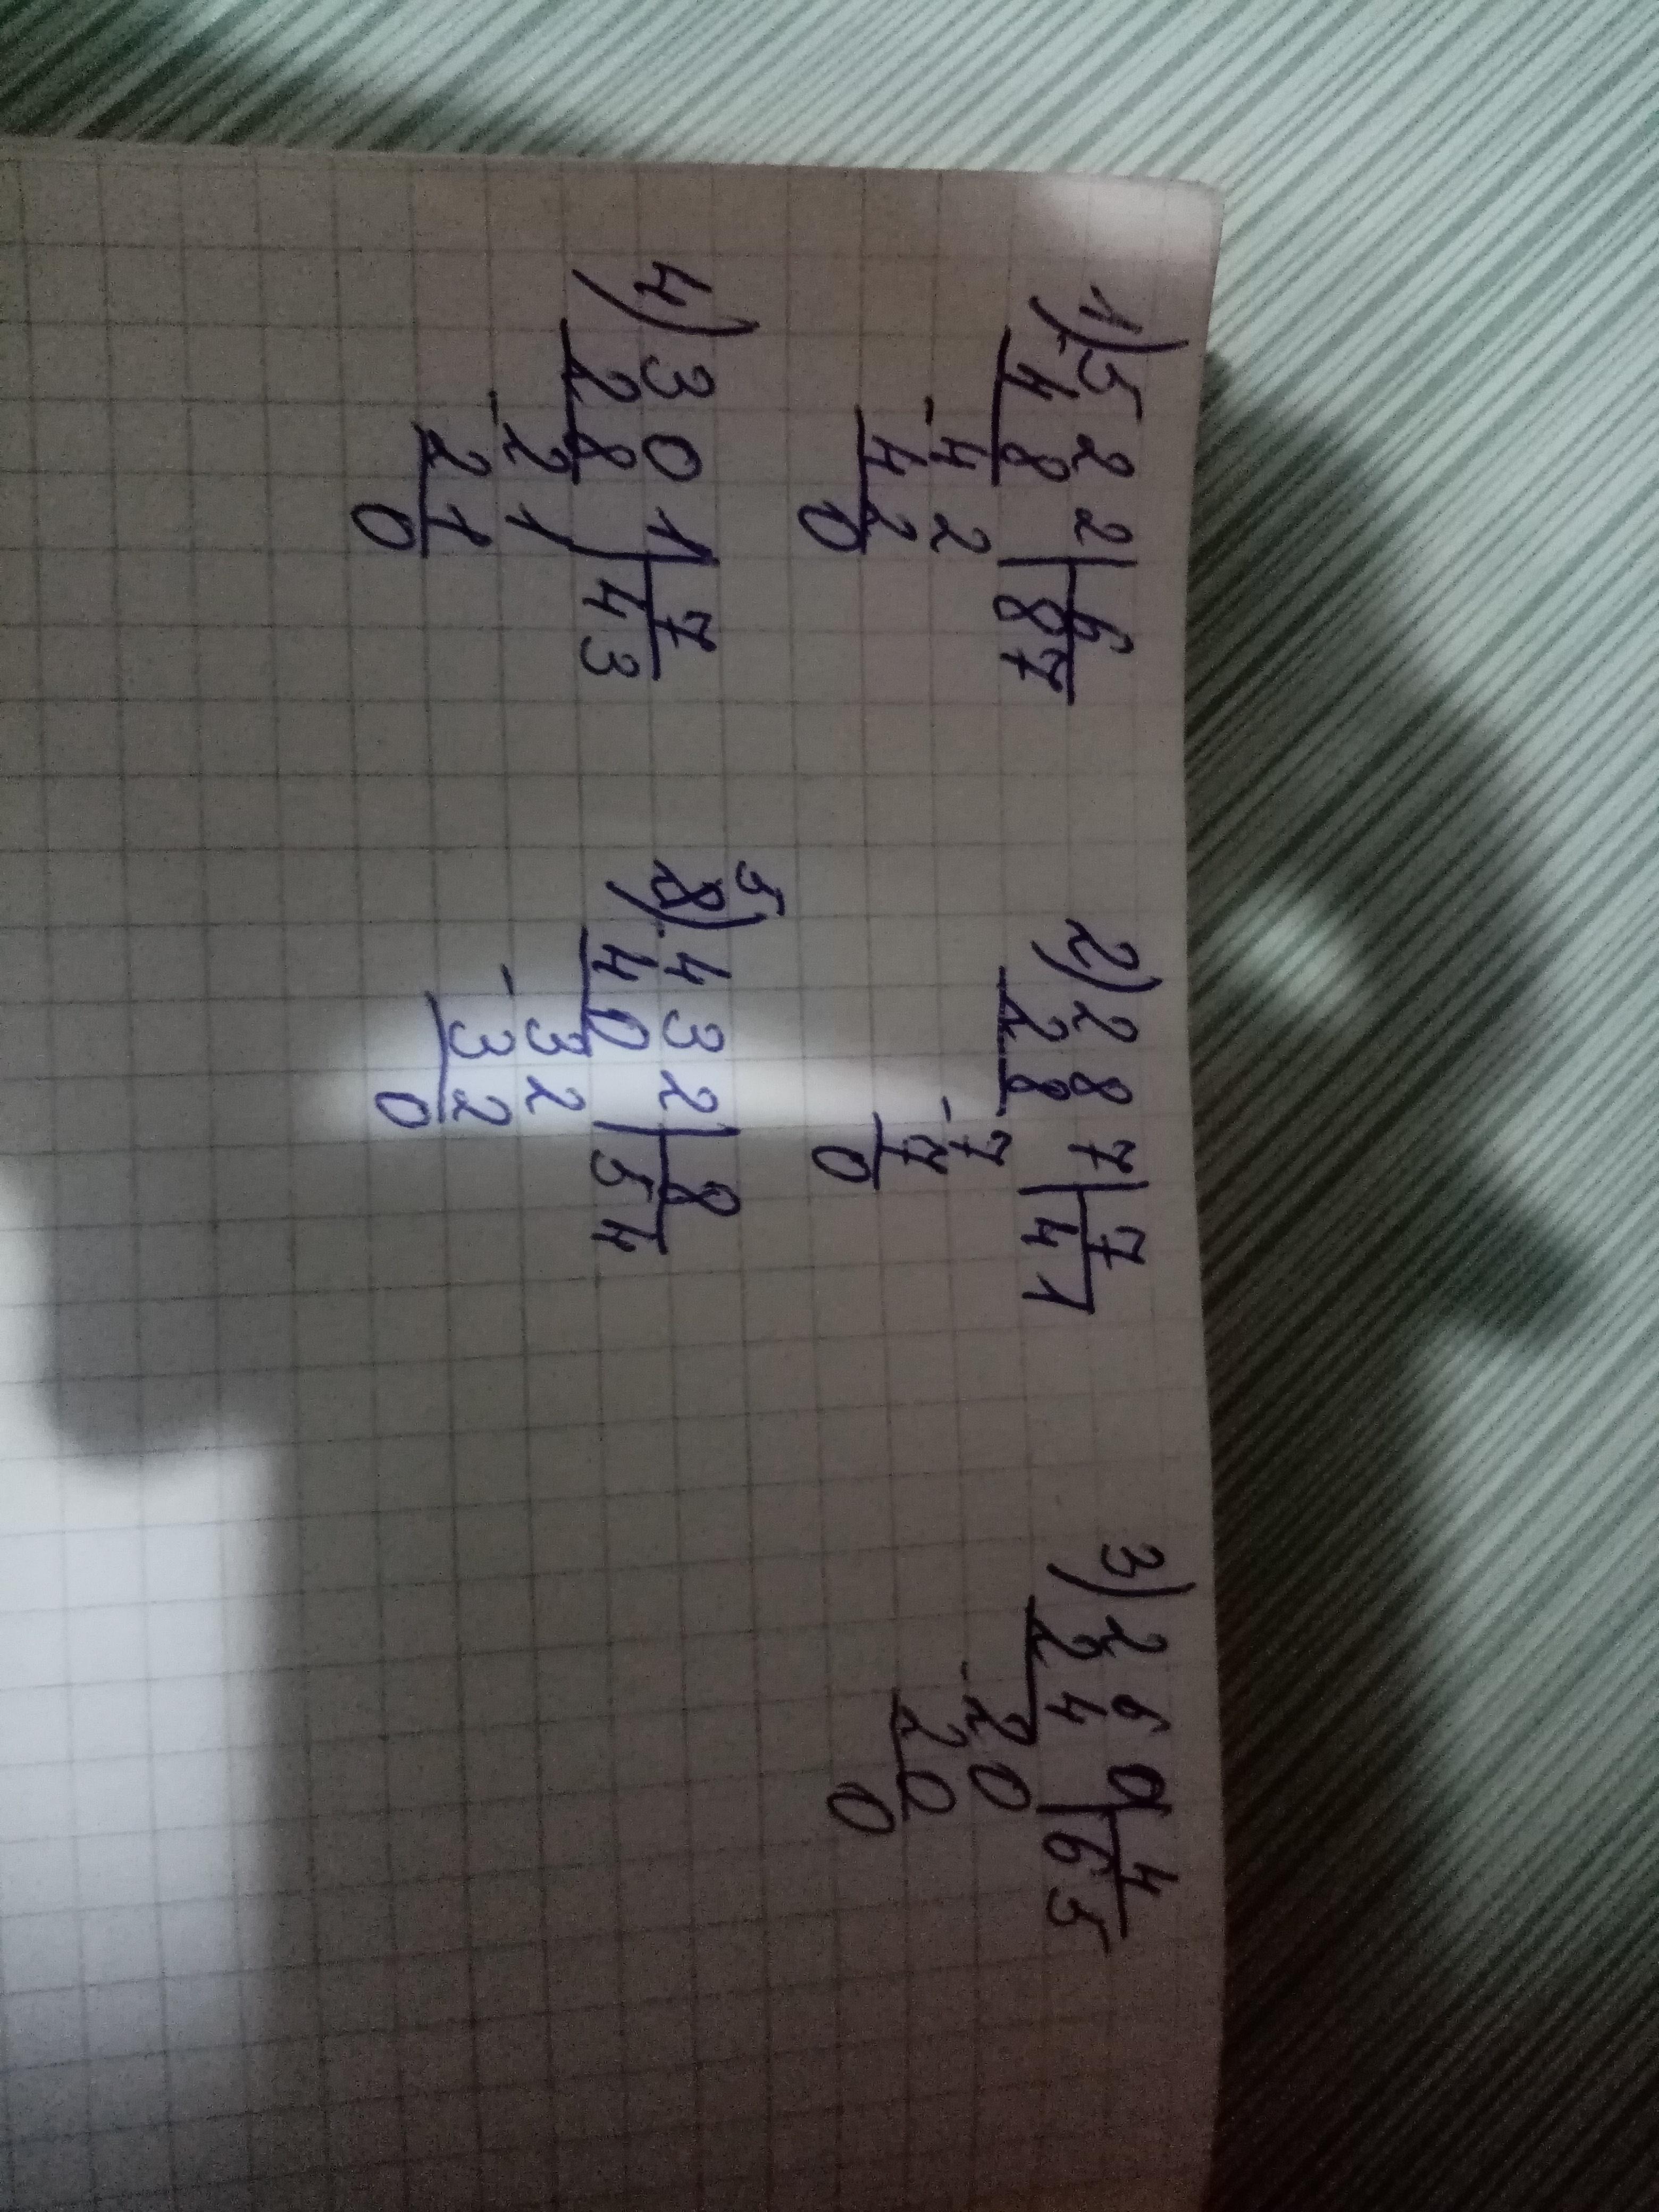 1) 522|6 2) 287|7 3) 260|4
-48 |87 28 |41 24 |65
-42 -7 -20
42 7 20
0 0 0
4) 301|7 5) 432|8
28 |43 40 |54
-21 -32
21 32
0 0